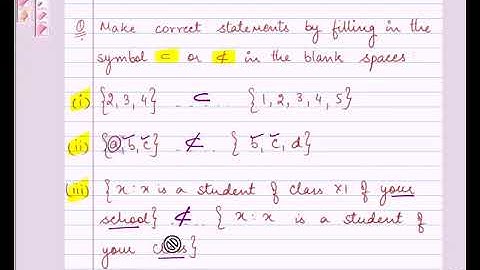 Q Make correct statements by filling in the
symbol ⊂ or ⊄ in the blank spaces
(i) {2, 3, 4} ..... ⊂ {1, 2, 3, 4, 5}
(ii) {a, b, c} ⊄ .... { b, c, d}
(iii) {x : x is a student of class XI of your
school} ⊄ .... { x : x is a student of
your class}